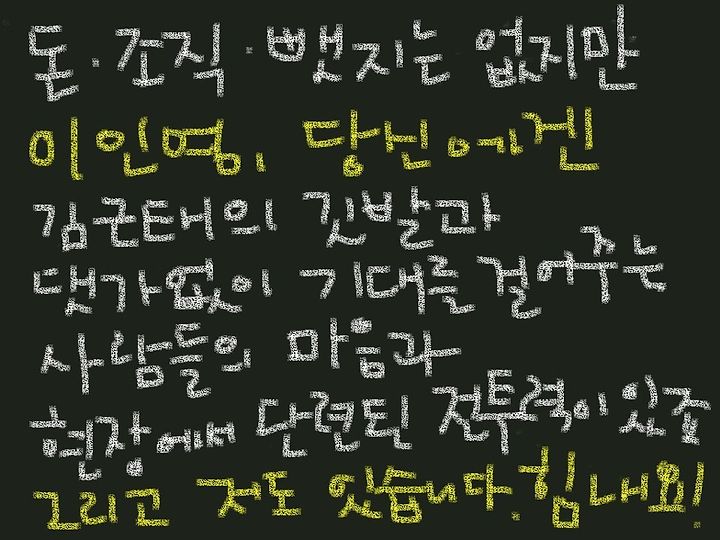 돈·조직·뱃지는 없지만
이인영, 당신에겐
김근태의 깃발과
댓가없이 기대를 걸어주는
사람들의 마음과
현장에서 단련된 전투력이 있죠
그리고 저도 있습니다. 힘내요!